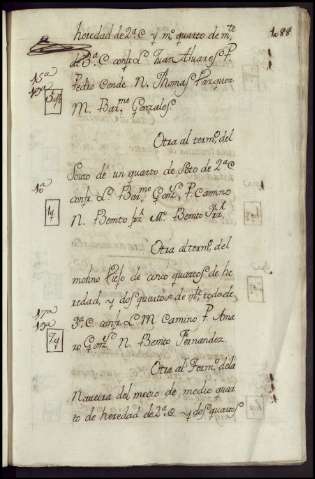 1088
heredad de 2ª C y mº quarto de mte
de 3ª C confr. L. Juan Aluares P.
Pedro Conde N. Thomas Vazquez
M. Barme Gonzales
Otra al termº del
Souto de un quarto de Soto de 2ª C
confr. L. Barme Gonz. P. Camino
N. Benito frz M. Benito frz
Otra al termº del
molino de cinco quartos de he
redad, y dos quartos de mte todo de
3ª C confr. L. M. Camino P. Ama
ro Gonz. N. Benito Fernandez
Otra al Termº dela
Naveira del medio de medio quar
to de heredad de 2ª C y dos quartos
15ª
16ª
17ª